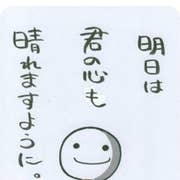 明日は
君の心も
晴れますように。